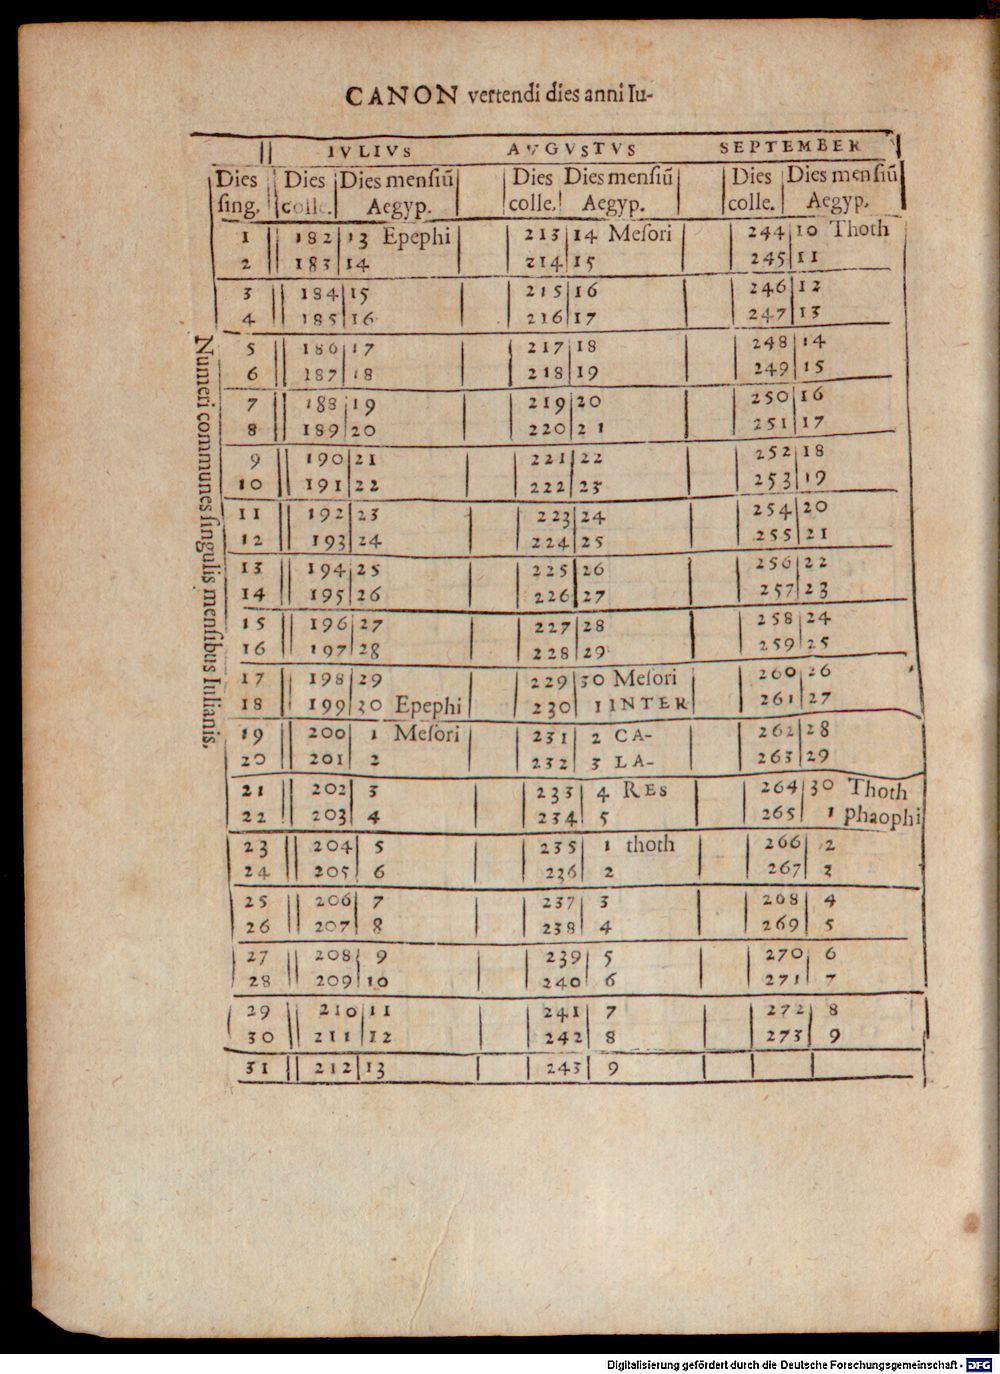 CANON vertendi dies anni Iu-
IVLIVS AVGVSTVS SEPTEMBER
Dies Dies Dies mensiũ Dies Dies mensiũ Dies Dies mensiũ
sing. colle. Aegyp. colle. Aegyp. colle. Aegyp.
1 182 13 Epephi 213 14 Mesori 244 10 Thoth
2 183 14 214 15 245 11
3 184 15 215 16 246 12
4 185 16 216 17 247 13
5 186 17 217 18 248 14
6 187 18 218 19 249 15
7 188 19 219 20 250 16
8 189 20 220 21 251 17
9 190 21 221 22 252 18
10 191 22 222 23 253 19
11 192 23 223 24 254 20
12 193 24 224 25 255 21
13 194 25 225 26 256 22
14 195 26 226 27 257 23
15 196 27 227 28 258 24
16 197 28 228 29 259 25
17 198 29 229 30 Mesori 260 26
18 199 30 Epephi 230 1 INTER 261 27
19 200 1 Mesori 231 2 CA- 262 28
20 201 2 232 3 LA- 263 29
21 202 3 233 4 REs 264 30 Thoth
22 203 4 234 5 265 1 phaophi
23 204 5 235 1 thoth 266 2
24 205 6 236 2 267 3
25 206 7 237 3 268 4
26 207 8 238 4 269 5
27 208 9 239 5 270 6
28 209 10 240 6 271 7
29 210 11 241 7 272 8
30 211 12 242 8 273 9
31 212 13 243 9
Numeri communes singulis mensibus Iulianis.
Digitalisierung gefördert durch die Deutsche Forschungsgemeinschaft - DFG